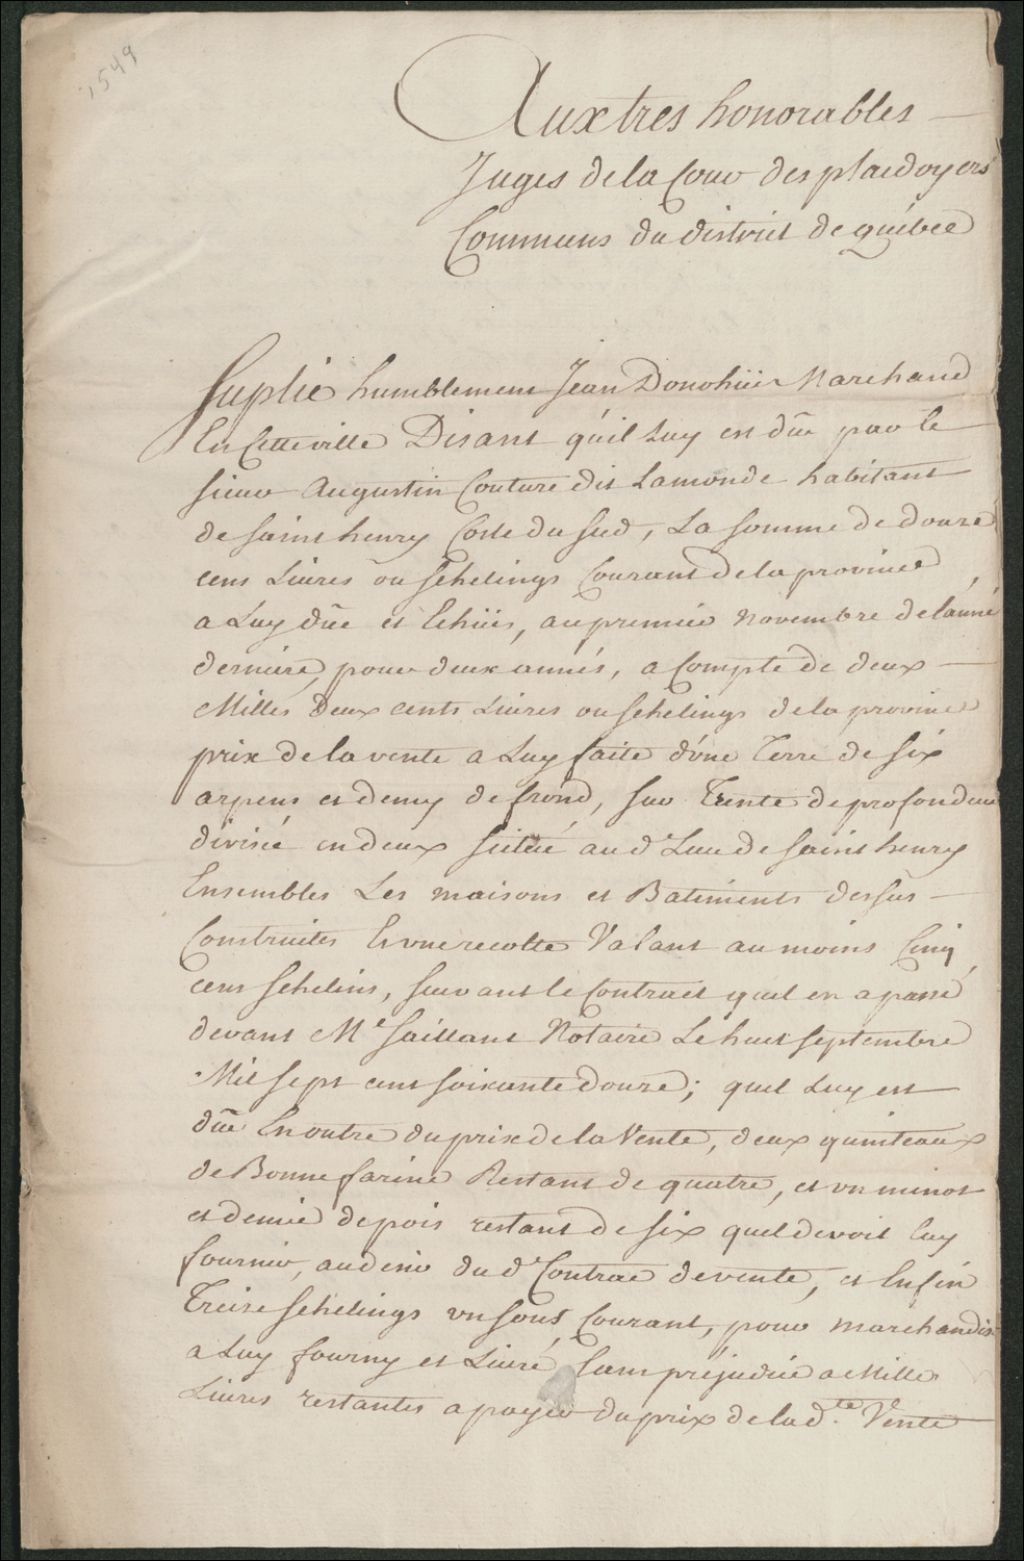 1549
Aux tres honorables
Juges de la Cour des plaidoyers
Communs du district de québec
Suplie humblement Jean Donohüe Marchand
En Cette ville Disant qu'il Luy est dûe par le
sieur Augustin Couture dit Lamonde habitant
de saint henry Coste du sud, La somme de douze
cens Livres ou schelings Courant de la province,
a Luy dûe et Echües, au premier novembre de l'anné
derniere, pour deux annés, a Compte de deux
Milles Deux cents Livres ou schelings de la province
prix de la vente a Luy faite d'une Terre de six
arpens et demy de frond, sur Trente de profondeur
divisié en deux situié aud Lieu de saint henry
Ensembles Les maisons et Batiments dessus
Construites Et une recolte Valant au moins Cinq
cens schelins, suivant le Contract quil en a passé
devant Me Saillant Notaire Le huit septembre
Mil sept cent soixante douze; quil Luy est
dûe En outre du prix de la Vente, deux quinteaux
de Bonne farine Restant de quatre, et un minot
et demie de pois restant de six quil devoit luy
fournir, au desir dud Contrac de vente, et Enfin
Treize schelings un sous Courant, pour marchandis
a Luy fourny et Livré, sans préjudice a Mille
Livres restantes a payer du prix de lad.te Vente